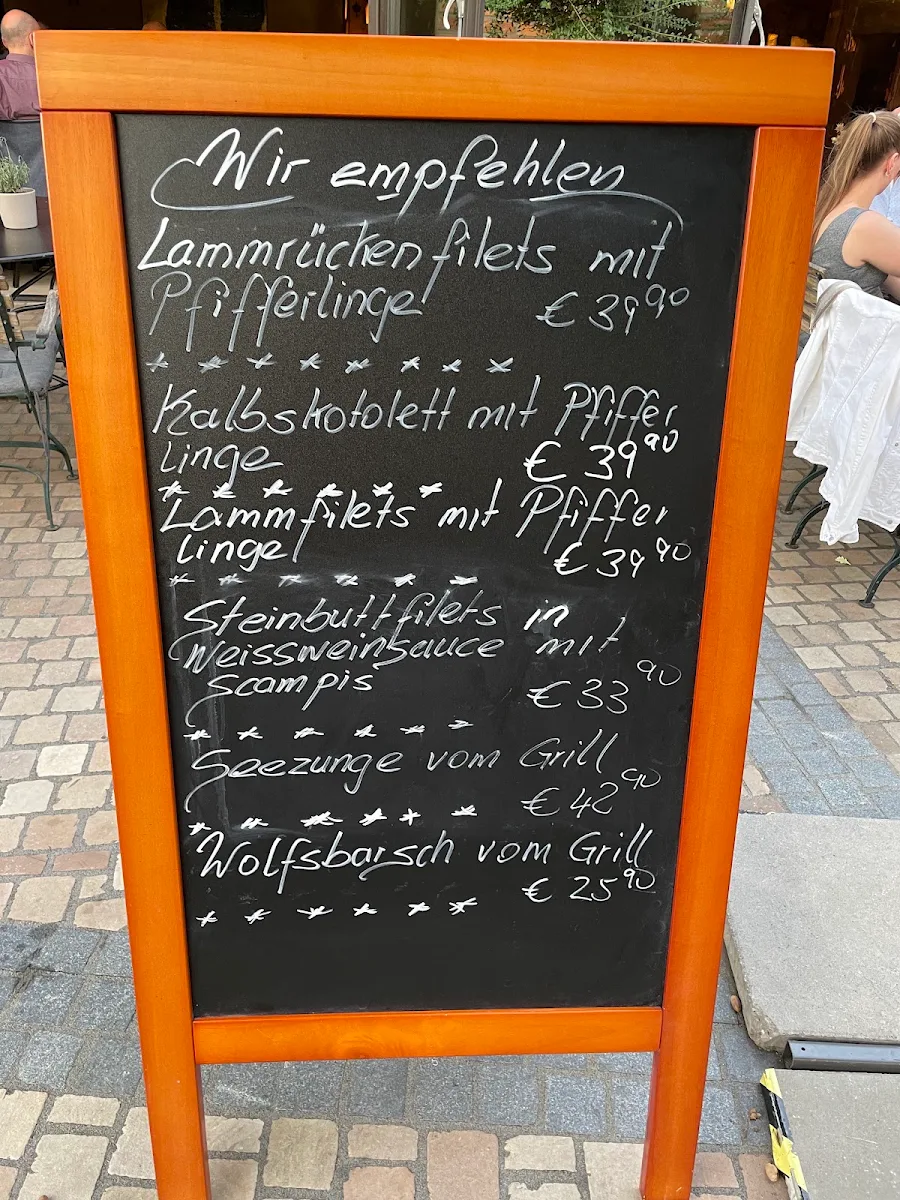 Wir empfehlen
Lammrückenfilets mit
Pfifferlinge € 39,90
* * * * * * * *
Kalbskotolett mit Pfiffer
linge € 39,90
* * * * * *
Lammfilets mit Pfiffer
linge € 39,90
* * * * * *
Steinbuttfilets in
Weissweinsauce mit
Scampis € 33,90
* * * * * *
Seezunge vom Grill
€ 42,90
* * * * * *
Wolfsbarsch vom Grill
€ 25,90
* * * * * *